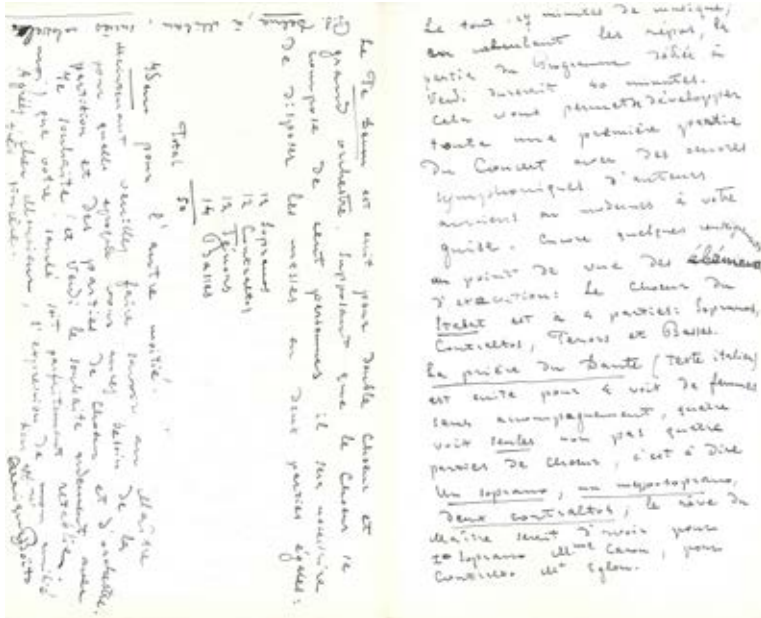 Le tout 29 minutes de musique,
en calculant les repos, la
partie du Programme dédié à
Verdi durerait 40 minutes.
Cela vous permet de développer
toute une première partie
du Concert avec des oeuvres
symphoniques d'auteurs
anciens ou modernes à votre
guise. Encore quelques
au point de vue des
d'execution: Le Choeur du
Stabat est à 4 parties: Sopranos,
Contraltos, Tenors et Basses.
La prière du Dante (Texte italien)
est écrite pour 4 voix de femmes
sans accompagnement, quatre
voix seules non pas quatre
parties de choeur, c'est à dire
Un soprano, un mezzosoprano,
deux contraltos, le rêve du
Maître serait d'avoir pour
1er Soprano Mme Caron, pour
Contralto
Le Te Deum est écrit pour double Choeur et
grand orchestre. Supposant que le Choeur se
compose de cent personnes il sera nécessaire
de disposer les masses en deux parties égales:
12 Sopranos
12 Contraltos
12 Ténors
14 Basses
Total 50
pour l'autre moitié.
Maintenant veuillez faire savoir au Maître
pour quelle époque vous aurez besoin de la
partition et des parties de Choeur et d'orchestre.
Je souhaite (et Verdi le souhaite ardemment avec
moi) que votre santé soit parfaitement rétablie.
Agréez, cher Monsieur, l'expression de mon amitié
très sincère.
Arrigo Boito